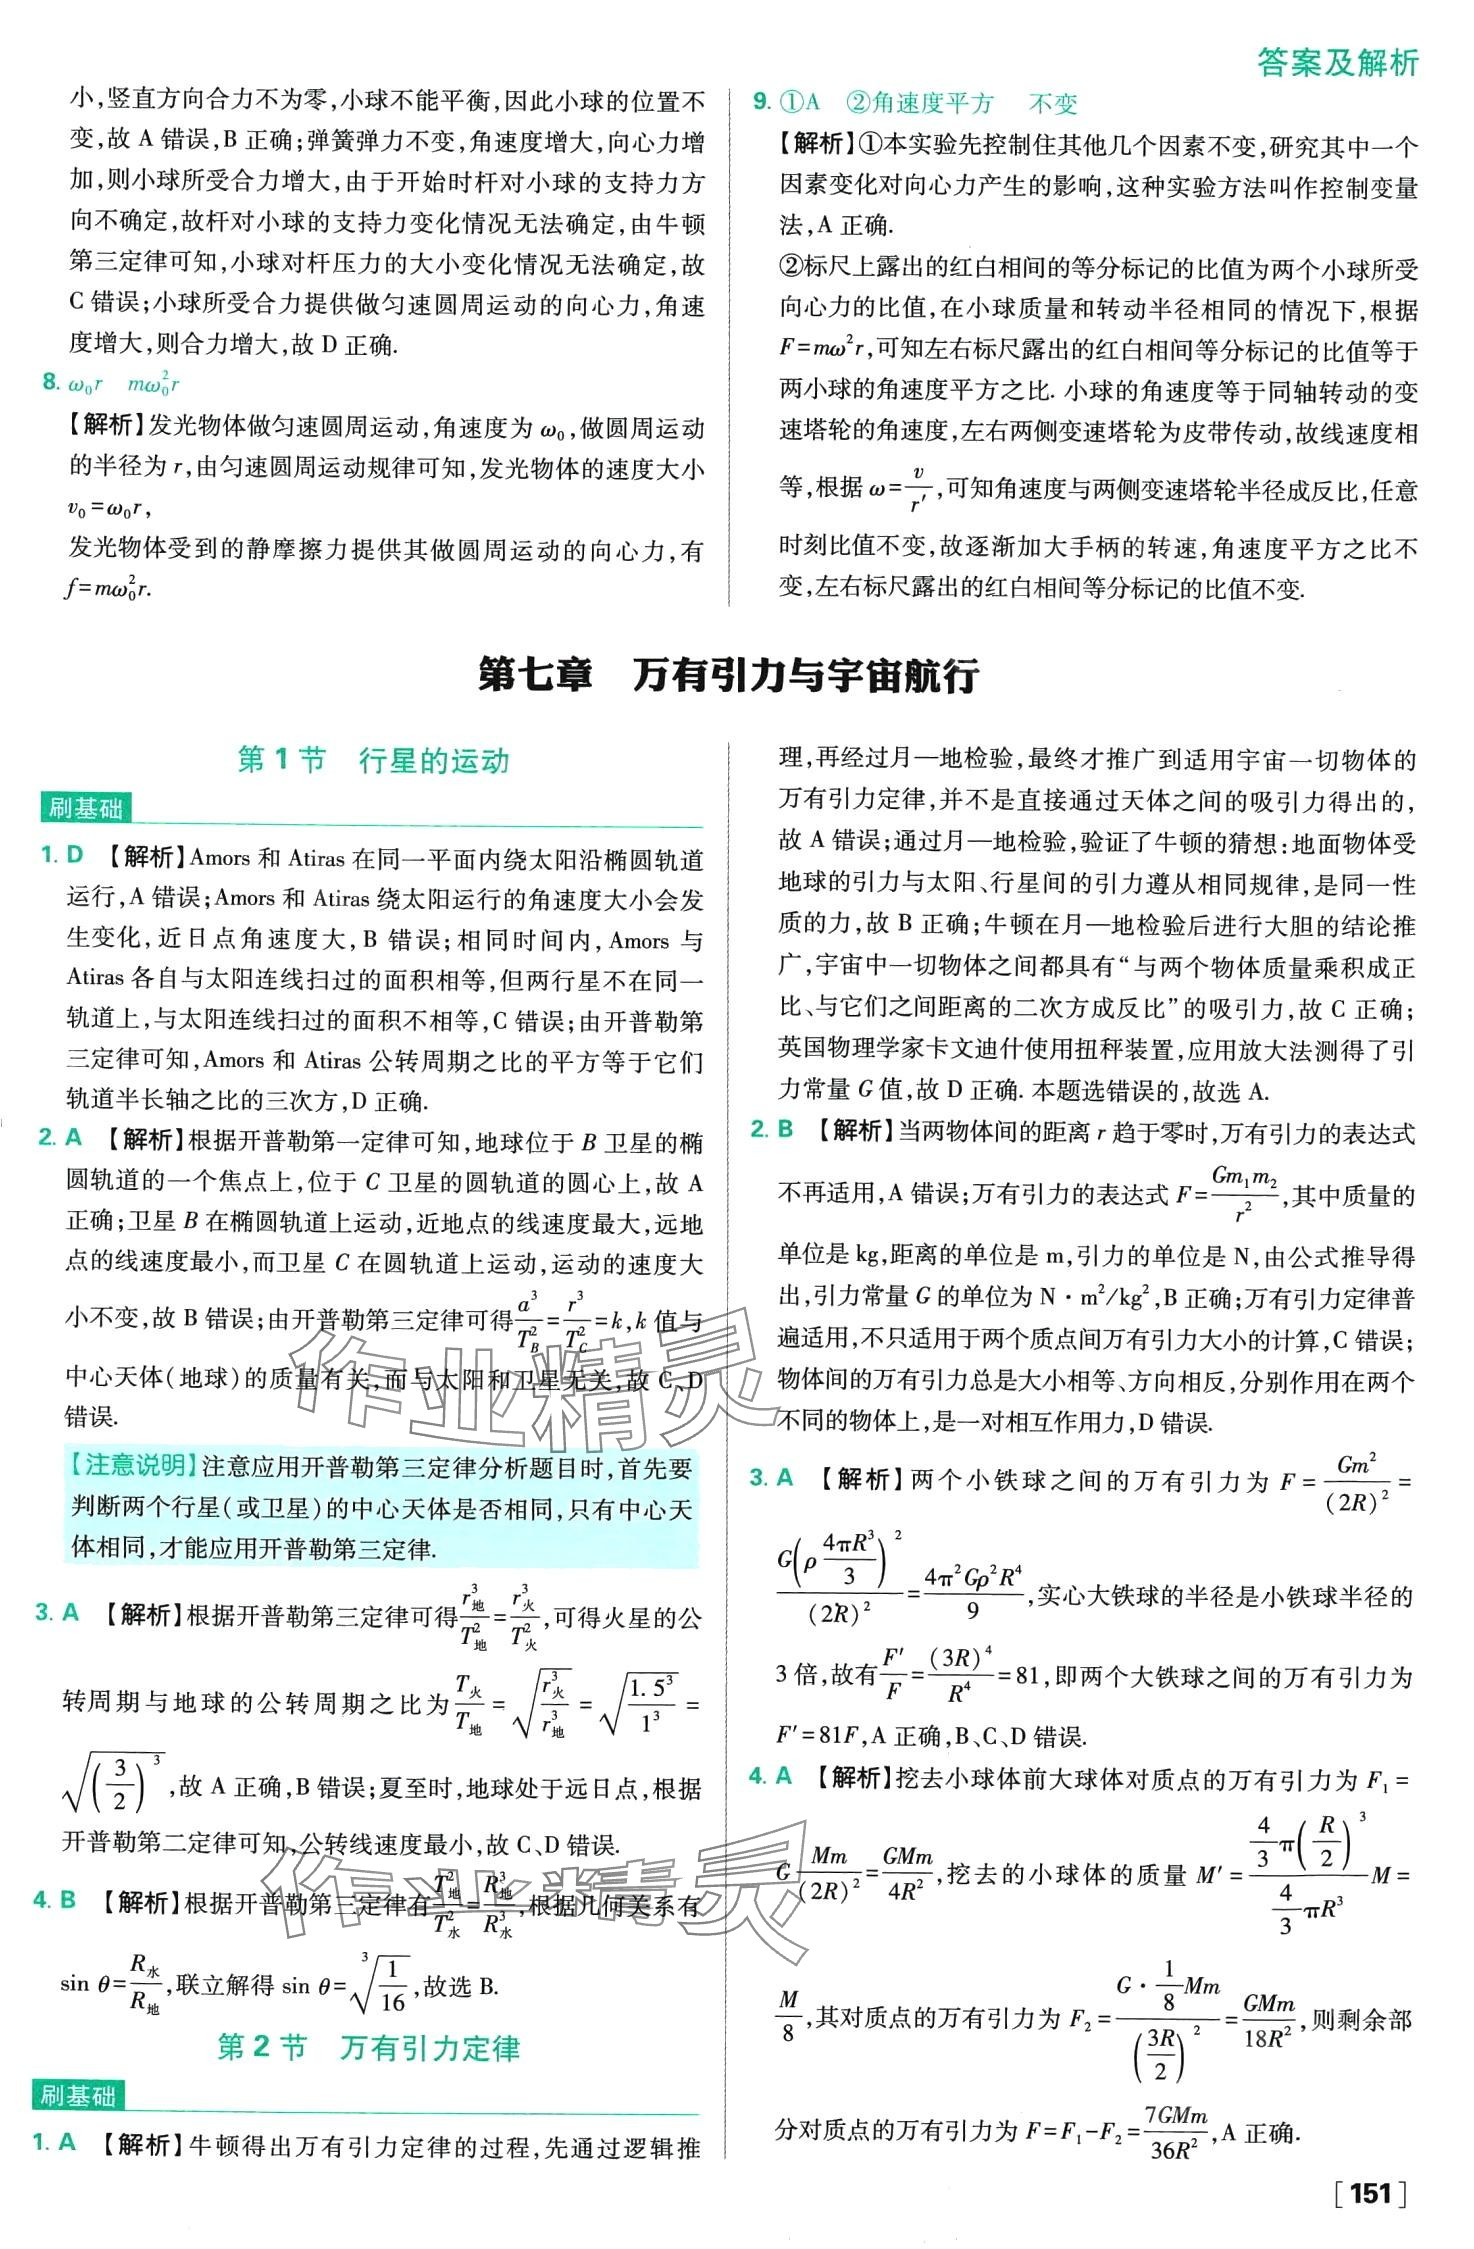 答案及解析
小,竖直方向合力不为零,小球不能平衡,因此小球的位置不
变,故 A 错误,B 正确;弹簧弹力不变,角速度增大,向心力增
加,则小球所受合力增大,由于开始时杆对小球的支持力方
向不确定,故杆对小球的支持力变化情况无法确定,由牛顿
第三定律可知,小球对杆压力的大小变化情况无法确定,故
C 错误;小球所受合力提供做匀速圆周运动的向心力,角速
度增大,则合力增大,故 D 正确.
8. ω₀r mω₀²r
【解析】发光物体做匀速圆周运动,角速度为 ω₀,做圆周运动
的半径为 r,由匀速圆周运动规律可知,发光物体的速度大小
v₀=ω₀r,
发光物体受到的静摩擦力提供其做圆周运动的向心力,有
f=mω₀²r.
9. ①A ②角速度平方 不变
【解析】①本实验先控制住其他几个因素不变,研究其中一个
因素变化对向心力产生的影响,这种实验方法叫作控制变量
法,A 正确.
②标尺上露出的红白相间的等分标记的比值为两个小球所受
向心力的比值,在小球质量和转动半径相同的情况下,根据
F=mω²r,可知左右标尺露出的红白相间等分标记的比值等于
两小球的角速度平方之比. 小球的角速度等于同轴转动的变
速塔轮的角速度,左右两侧变速塔轮为皮带传动,故线速度相
等,根据 ω=v/r′,可知角速度与两侧变速塔轮半径成反比,任意
时刻比值不变,故逐渐加大手柄的转速,角速度平方之比不
变,左右标尺露出的红白相间等分标记的比值不变.
第七章 万有引力与宇宙航行
第 1 节 行星的运动
刷基础
1. D 【解析】Amors 和 Atiras 在同一平面内绕太阳沿椭圆轨道
运行,A 错误;Amors 和 Atiras 绕太阳运行的角速度大小会发
生变化,近日点角速度大,B 错误;相同时间内,Amors 与
Atiras 各自与太阳连线扫过的面积相等,但两行星不在同一
轨道上,与太阳连线扫过的面积不相等,C 错误;由开普勒第
三定律可知,Amors 和 Atiras 公转周期之比的平方等于它们
轨道半长轴之比的三次方,D 正确.
2. A 【解析】根据开普勒第一定律可知,地球位于 B 卫星的椭
圆轨道的一个焦点上,位于 C 卫星的圆轨道的圆心上,故 A
正确;卫星 B 在椭圆轨道上运动,近地点的线速度最大,远地
点的线速度最小,而卫星 C 在圆轨道上运动,运动的速度大
小不变,故 B 错误;由开普勒第三定律可得a³/T_B²=r³/T_C²=k,k 值与
中心天体(地球)的质量有关,而与太阳和卫星无关,故 C、D
错误.
【注意说明】注意应用开普勒第三定律分析题目时,首先要
判断两个行星(或卫星)的中心天体是否相同,只有中心天
体相同,才能应用开普勒第三定律.
3. A 【解析】根据开普勒第三定律可得r地³/T地²=r火³/T火²,可得火星的公
转周期与地球的公转周期之比为T火/T地=√(r火³/r地³)=√(1.5³/1³)=
√((3/2)³),故 A 正确,B 错误;夏至时,地球处于远日点,根据
开普勒第二定律可知,公转线速度最小,故 C、D 错误.
4. B 【解析】根据开普勒第三定律有T地²/T水²=R地³/R水³,根据几何关系有
sin θ=R水/R地,联立解得 sin θ=∛(1/16),故选 B.
第 2 节 万有引力定律
刷基础
1. A 【解析】牛顿得出万有引力定律的过程,先通过逻辑推
理,再经过月—地检验,最终才推广到适用宇宙一切物体的
万有引力定律,并不是直接通过天体之间的吸引力得出的,
故 A 错误;通过月—地检验,验证了牛顿的猜想:地面物体受
地球的引力与太阳、行星间的引力遵从相同规律,是同一性
质的力,故 B 正确;牛顿在月—地检验后进行大胆的结论推
广,宇宙中一切物体之间都具有“与两个物体质量乘积成正
比、与它们之间距离的二次方成反比”的吸引力,故 C 正确;
英国物理学家卡文迪什使用扭秤装置,应用放大法测得了引
力常量 G 值,故 D 正确. 本题选错误的,故选 A.
2. B 【解析】当两物体间的距离 r 趋于零时,万有引力的表达式
不再适用,A 错误;万有引力的表达式 F=Gm₁m₂/r²,其中质量的
单位是 kg,距离的单位是 m,引力的单位是 N,由公式推导得
出,引力常量 G 的单位为 N·m²/kg²,B 正确;万有引力定律普
遍适用,不只适用于两个质点间万有引力大小的计算,C 错误;
物体间的万有引力总是大小相等、方向相反,分别作用在两个
不同的物体上,是一对相互作用力,D 错误.
3. A 【解析】两个小铁球之间的万有引力为 F=Gm²/(2R)²=
G(ρ 4πR³/3)²/(2R)²=4π²Gρ²R⁴/9,实心大铁球的半径是小铁球半径的
3 倍,故有F′/F=(3R)⁴/R⁴=81,即两个大铁球之间的万有引力为
F′=81F,A 正确,B、C、D 错误.
4. A 【解析】挖去小球体前大球体对质点的万有引力为 F₁=
G Mm/(2R)²=GMm/4R²,挖去的小球体的质量 M′=(4/3)π(R/2)³/((4/3)πR³) M=
M/8,其对质点的万有引力为 F₂=(G·(1/8)Mm)/(3R/2)²=GMm/18R²,则剩余部
分对质点的万有引力为 F=F₁-F₂=7GMm/36R²,A 正确.
作业精灵
作业精灵
[151]